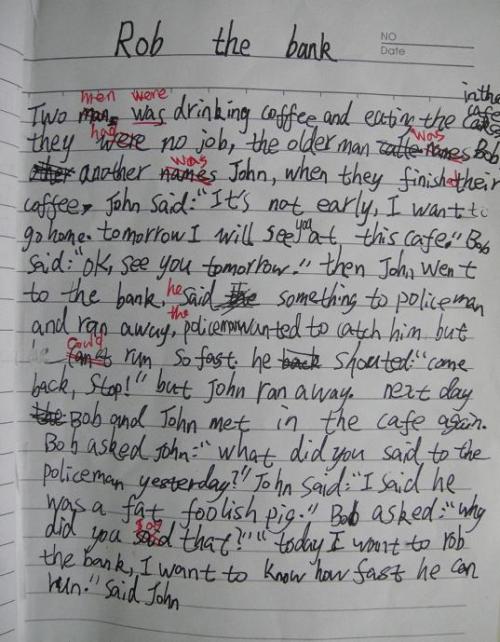 Rob the bank
NO
Date
men were in the
Two man was drinking coffee and eatin the cafe
had was
they were no job, the older man names Bob
was
another names John, when they finished their
coffee, John said: "It's not early, I want to
go home. tomorrow I will see you at this cafe." Bob
said: "OK, see you tomorrow." then John went
to the bank, he said something to policeman
and ran away, the policeman wanted to catch him but
could
he run so fast. he back shouted: "come
back, stop!" but John ran away. next day
the Bob and John met in the cafe again.
Bob asked John: "what did you said to the
policeman yesterday?" John said: "I said he
was a fat foolish pig." Bob asked: "why
did you say that?" "today I want to rob
the bank, I want to know how fast he can
run." said John